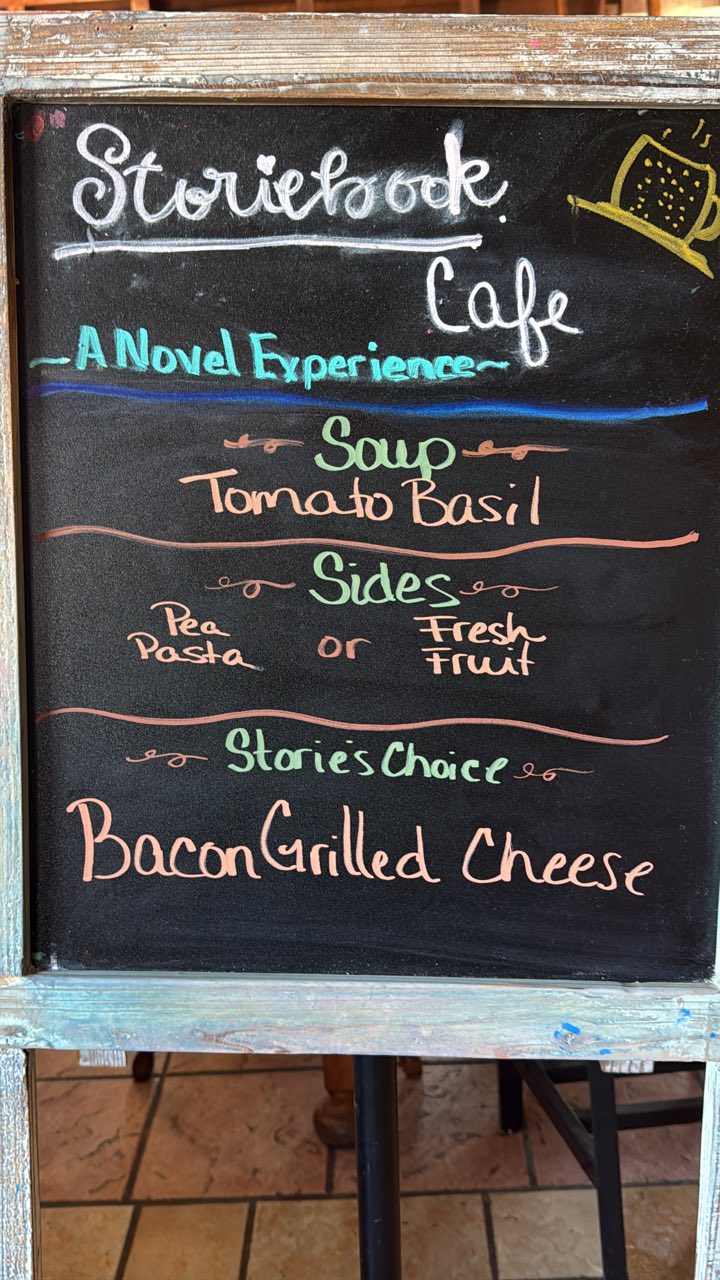 Storiebook
Cafe
~A Novel Experience~
Soup
Tomato Basil
Sides
Pea Pasta or Fresh Fruit
Storie's Choice
Bacon Grilled Cheese